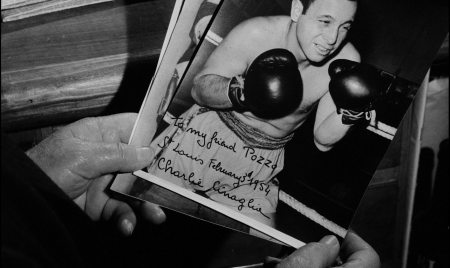 To my friend Pozzo
St Louis February 3th 1954
Charlie Anaglie